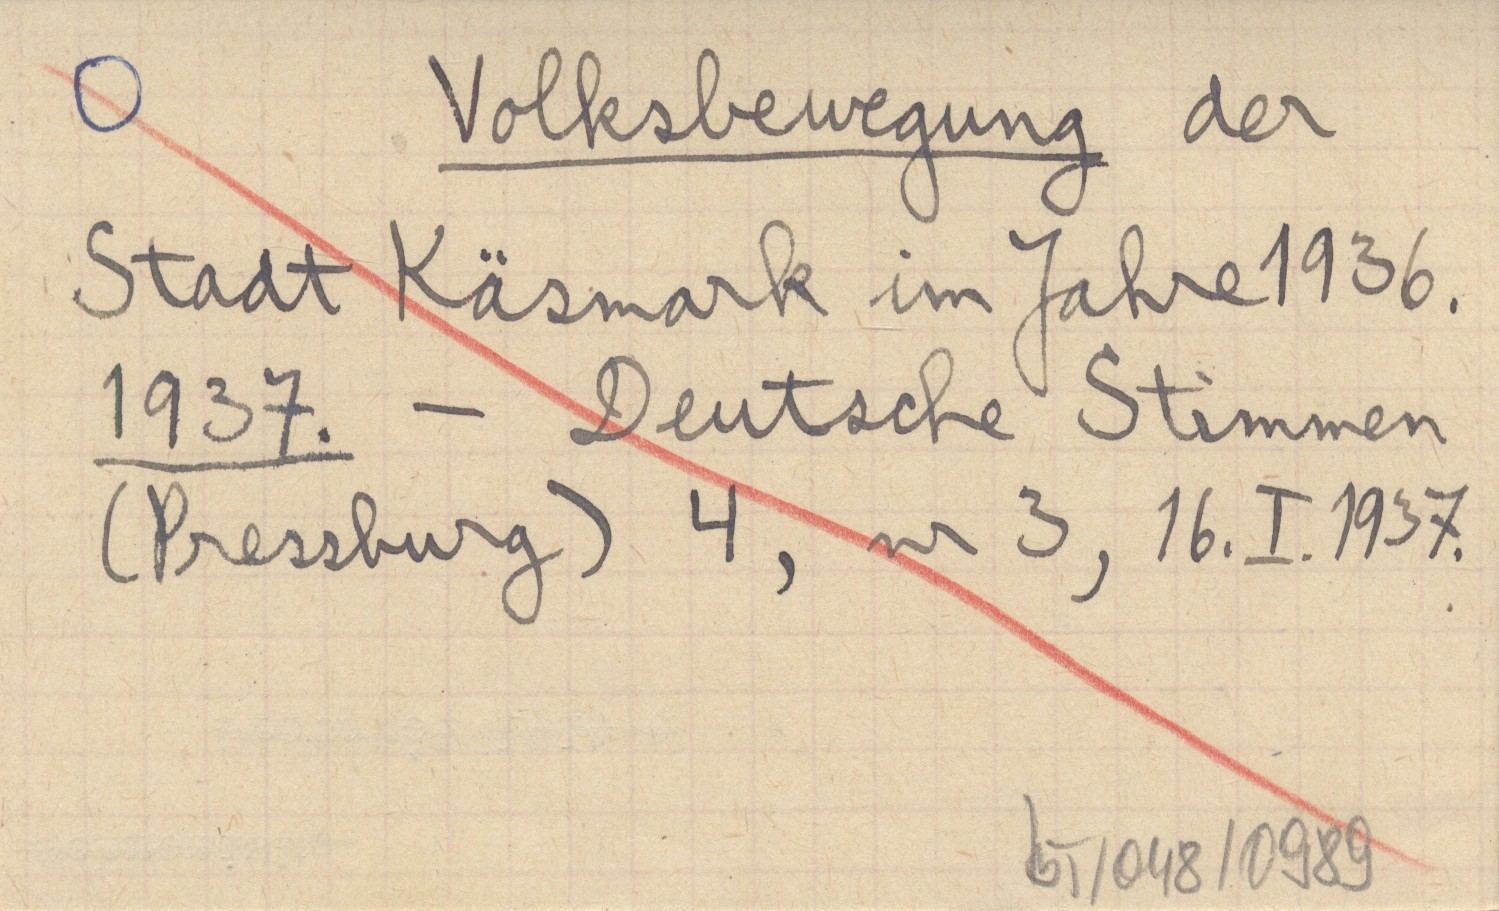 Volksbewegung der
Stadt Käsmark im Jahre 1936.
1937. — Deutsche Stimmen
(Pressburg) 4, nr 3, 16. I. 1937.
/048/0989